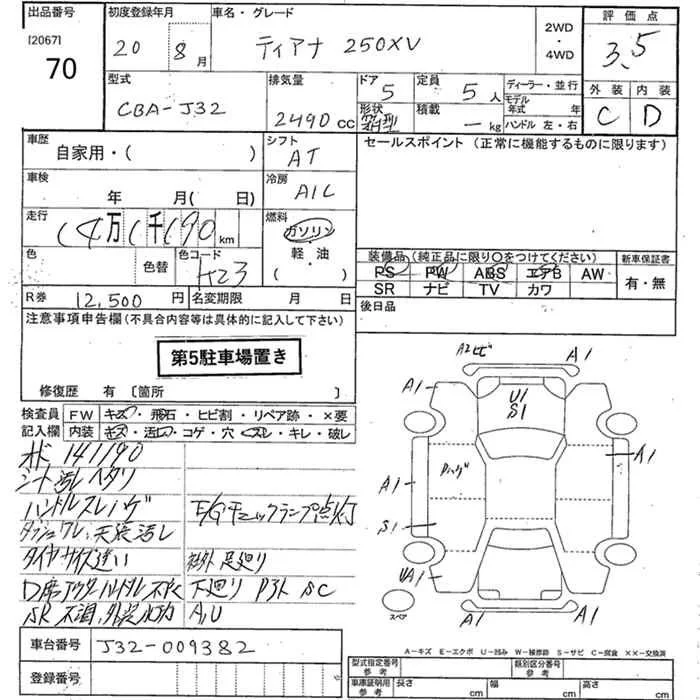 出品番号 初度登録年月 車名・グレード 2WD・4WD 評価点
[2067]
70
20 8月 ティアナ 250XV 3.5
型式 排気量 ドア 定員 ディーラー・並行 外装 内装
CBA-J32 2490cc 5 5人 モデル年式 年 C D
形状 積載 kg ハンドル 左・右
車歴 シフト セールスポイント(正常に機能するものに限ります)
自家用・( ) AT
車検 冷房
年 月( 日) A/C
走行 燃料
14万1千190km ガソリン・軽・油・( )
色 色替 色コード 装備品(純正品に限り○をつけてください) 新車保証書
H23 PS PW ABS エアB AW 有・無
SR ナビ TV カワ
R券 12,500円 名変期限 月 日 後日品
注意事項申告欄(不具合内容等は具体的に記入して下さい)
第5駐車場置き
修復歴 有 〔箇所 〕
検査員 FW キズ・飛石・ヒビ割・リペア跡・×要
記入欄 内装 キズ・汚れ・コゲ・穴・スレ・キレ・破し
141190
シート汚レ ヘタリ
ハンドルスレ ハゲ E/Gチェックランプ点灯
ダッシュワレ、天張汚し
タイヤサイズ違い 社外足廻り
D席アウターハンドル 下廻り サビ SC
SR不調、外装 A,U
車台番号 J32-009382
登録番号
A2ビ A1
A1 U1 A1
S1
ハゲ A1
A1
S1
UA1
スペア A1 A1
A-キズ E-エクボ U-凹み W-補修跡 S-サビ C-腐食 ××-交換済
型式指定番号 参考 類別区分番号 参考
車庫証明用 参考 長さ cm 幅 cm 高さ cm